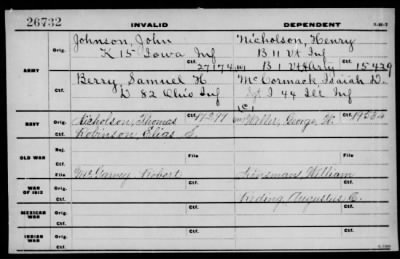 26732
INVALID
DEPENDENT
ARMY
Orig.
Johnson, John
Nicholson, Henry
K 15 Iowa Inf
B 11 Vt Inf
Ctf.
27174
B 1 Vt H Arty
Ctf.
15429
Orig.
Berry, Samuel H
McCormack, Isaiah D.
D 82 Ohio Inf
Sgt I 44 Ill Inf
Ctf.
NAVY
Orig.
Nicholson, Thomas
Waller, George W.
Ctf.
Robinson, Elias S.
OLD WAR
Rej.
Ctf.
File
File
WAR OF 1812
Orig.
McGarvey Robert
William
Ctf.
Augustus
MEXICAN WAR
Orig.
Ctf.
INDIAN WAR
Orig.
Ctf.